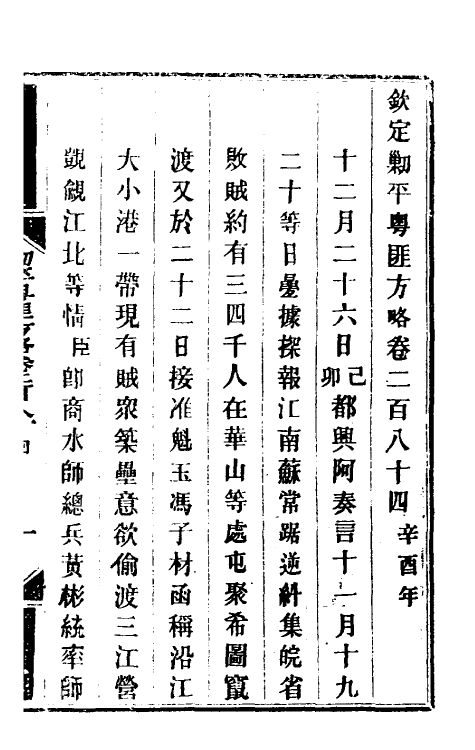 欽定剿平粵匪方略卷二百八十四 辛酉年
十二月二十六日己卯都興阿奏言十一月十九
二十等日疊據探報江南蘇常踞逆糾集皖省
敗賊約有三四千人在華山等處屯聚希圖竄
渡又於二十二日接准魁玉馮子材函稱沿江
大小港一帶現有賊衆築壘意欲偷渡三江營
覬覦江北等情臣卽商水師總兵黃彬統率師
一